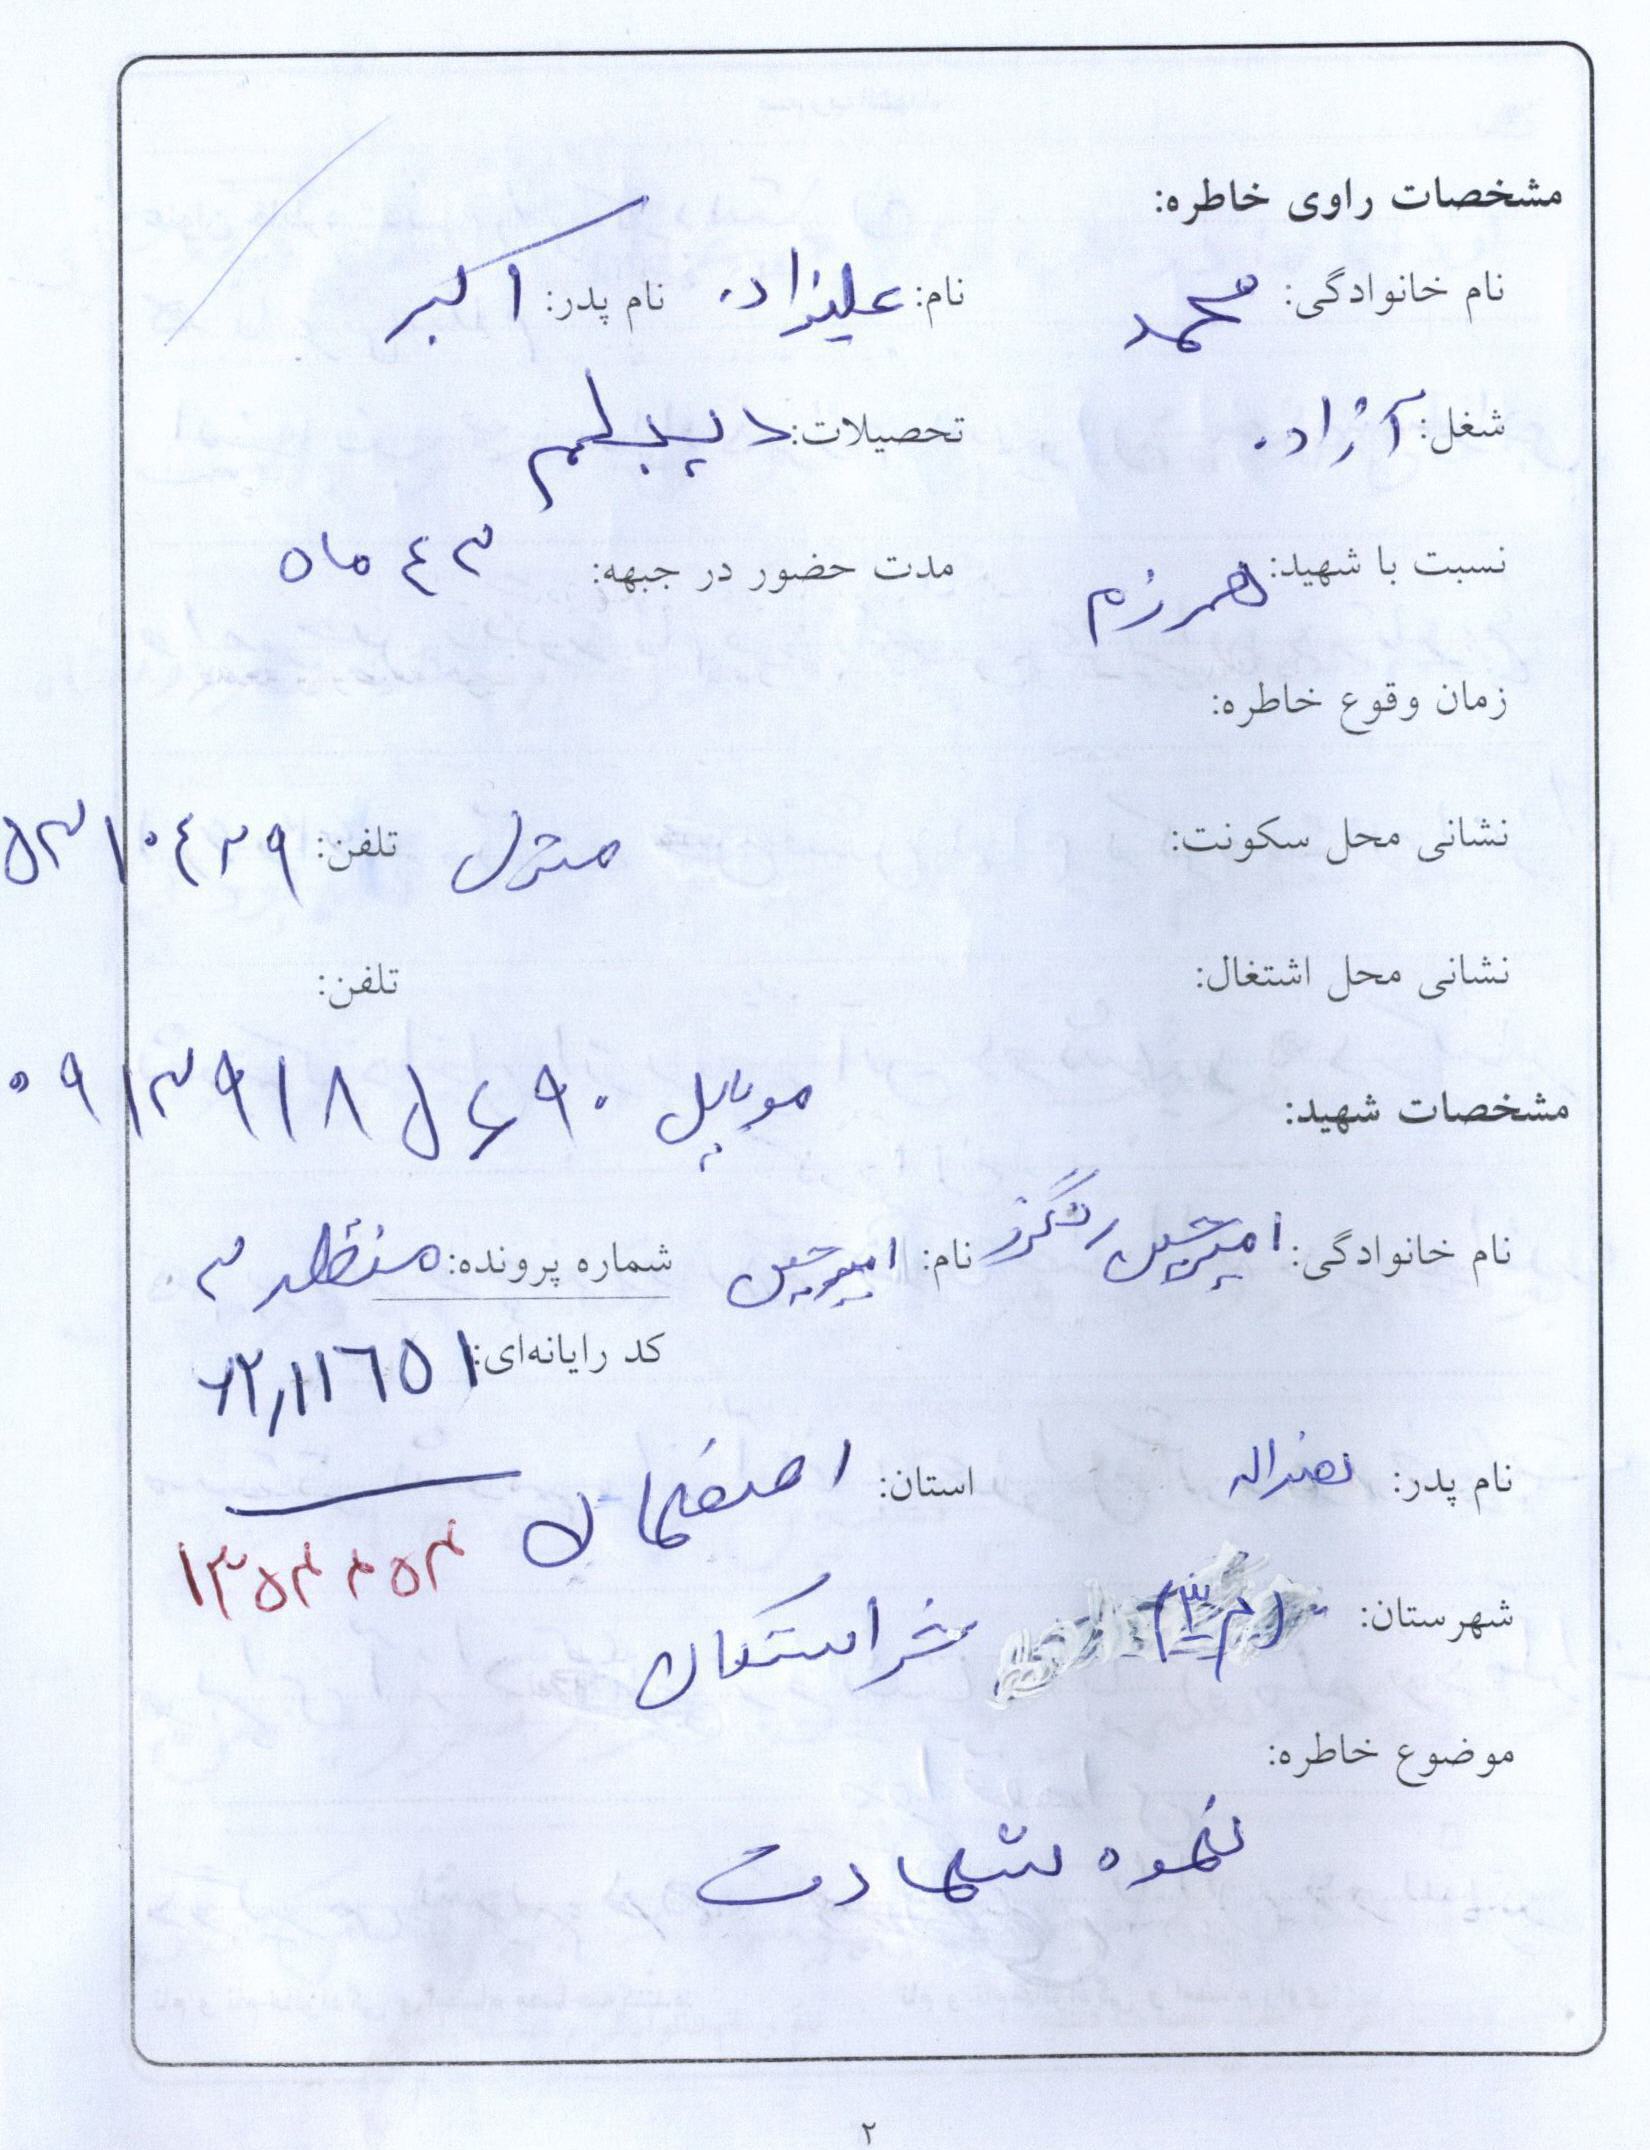 مشخصات راوی خاطره:
نام خانوادگی: محمد نام: علیزاده نام پدر: اکبر
شغل: آزاد. تحصیلات: دیپلم
نسبت با شهید: همرزم مدت حضور در جبهه: ۴۳ ماه
زمان وقوع خاطره:
نشانی محل سکونت: منزل تلفن: ۵۳۱۰۴۲۹
نشانی محل اشتغال: تلفن:
موبایل ۰۹۱۳۹۱۸۵۶۹۰
مشخصات شهید:
نام خانوادگی: امیرحسین رنگرز نام: امیرحسین شماره پرونده:
کد رایانه‌ای: ۶۲٫۱۱۶۵۱
نام پدر: نصراله استان: اصفهان
۱۳۵۴۴۵۴
شهرستان: (م۳) خراسکان
موضوع خاطره:
نحوه شهادت
۲